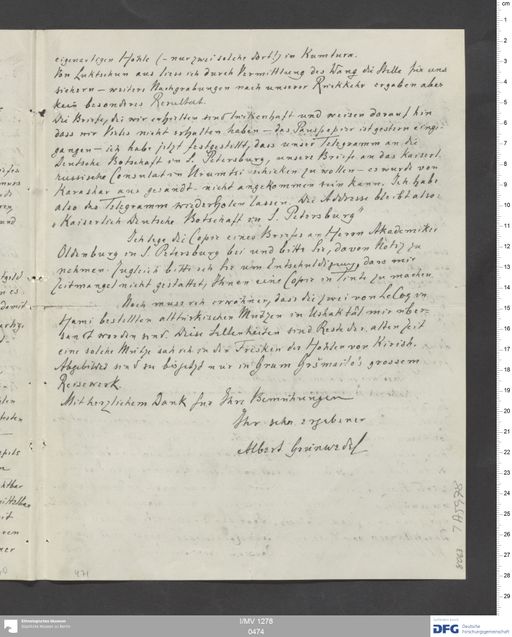 eigenartigen Höhle (– nur zwei solche dort!) in Kumtura.
Von Luktschun aus liess ich durch Vermittlung des Wang die Stelle für uns
sichern – weitere Nachgrabungen nach unserer Rückkehr ergaben aber
kein besonderes Resultat.
Die Briefe, die wir erhielten sind lückenhaft und weisen darauf hin
dass wir Vieles nicht erhalten haben – das Pauspapier ist gestern einge-
gangen – ich habe jetzt festgestellt, dass unser Telegramm an die
Deutsche Botschaft in S. Petersburg, unsere Briefe an das Kaiserl.
russische Consulat in Urumtsi schicken zu wollen – es wurde von
Karashar aus gesandt – nicht angekommen sein kann. Ich habe
also das Telegramm wiederholen lassen. Die Addresse bleibt also:
„Kaiserlich Deutsche Botschaft in S. Petersburg"
Ich lege die Copie eines Briefes an Herrn Akademiker
Oldenburg in S. Petersburg bei und bitte Sie, davon Notiz zu
nehmen. Zugleich bitte ich Sie um Entschuldigung, dass mir
Zeitmangel nicht gestattet, Ihnen eine Copie in Tinte zu machen.
Noch muss ich erwähnen, dass die zwei von LeCoq in
Hami bestellten alttürkischen Mützen in Ushaktal mir über-
sandt worden sind. Diese Seltenheiten sind Reste der alten Zeit
eine solche Mütze sah ich in den Fresken der Höhlen vor Kirish.
Abgebildet sind sie bis jetzt nur in Grum Gržmailo's grossem
Reisewerk.
Mit herzlichem Dank für Ihre Bemühungen
Ihr sehr ergebener
Albert Grünwedel
471
I/MV 1278
0474
Ethnologisches Museum
Staatliche Museen zu Berlin
DFG Deutsche
Forschungsgemeinschaft